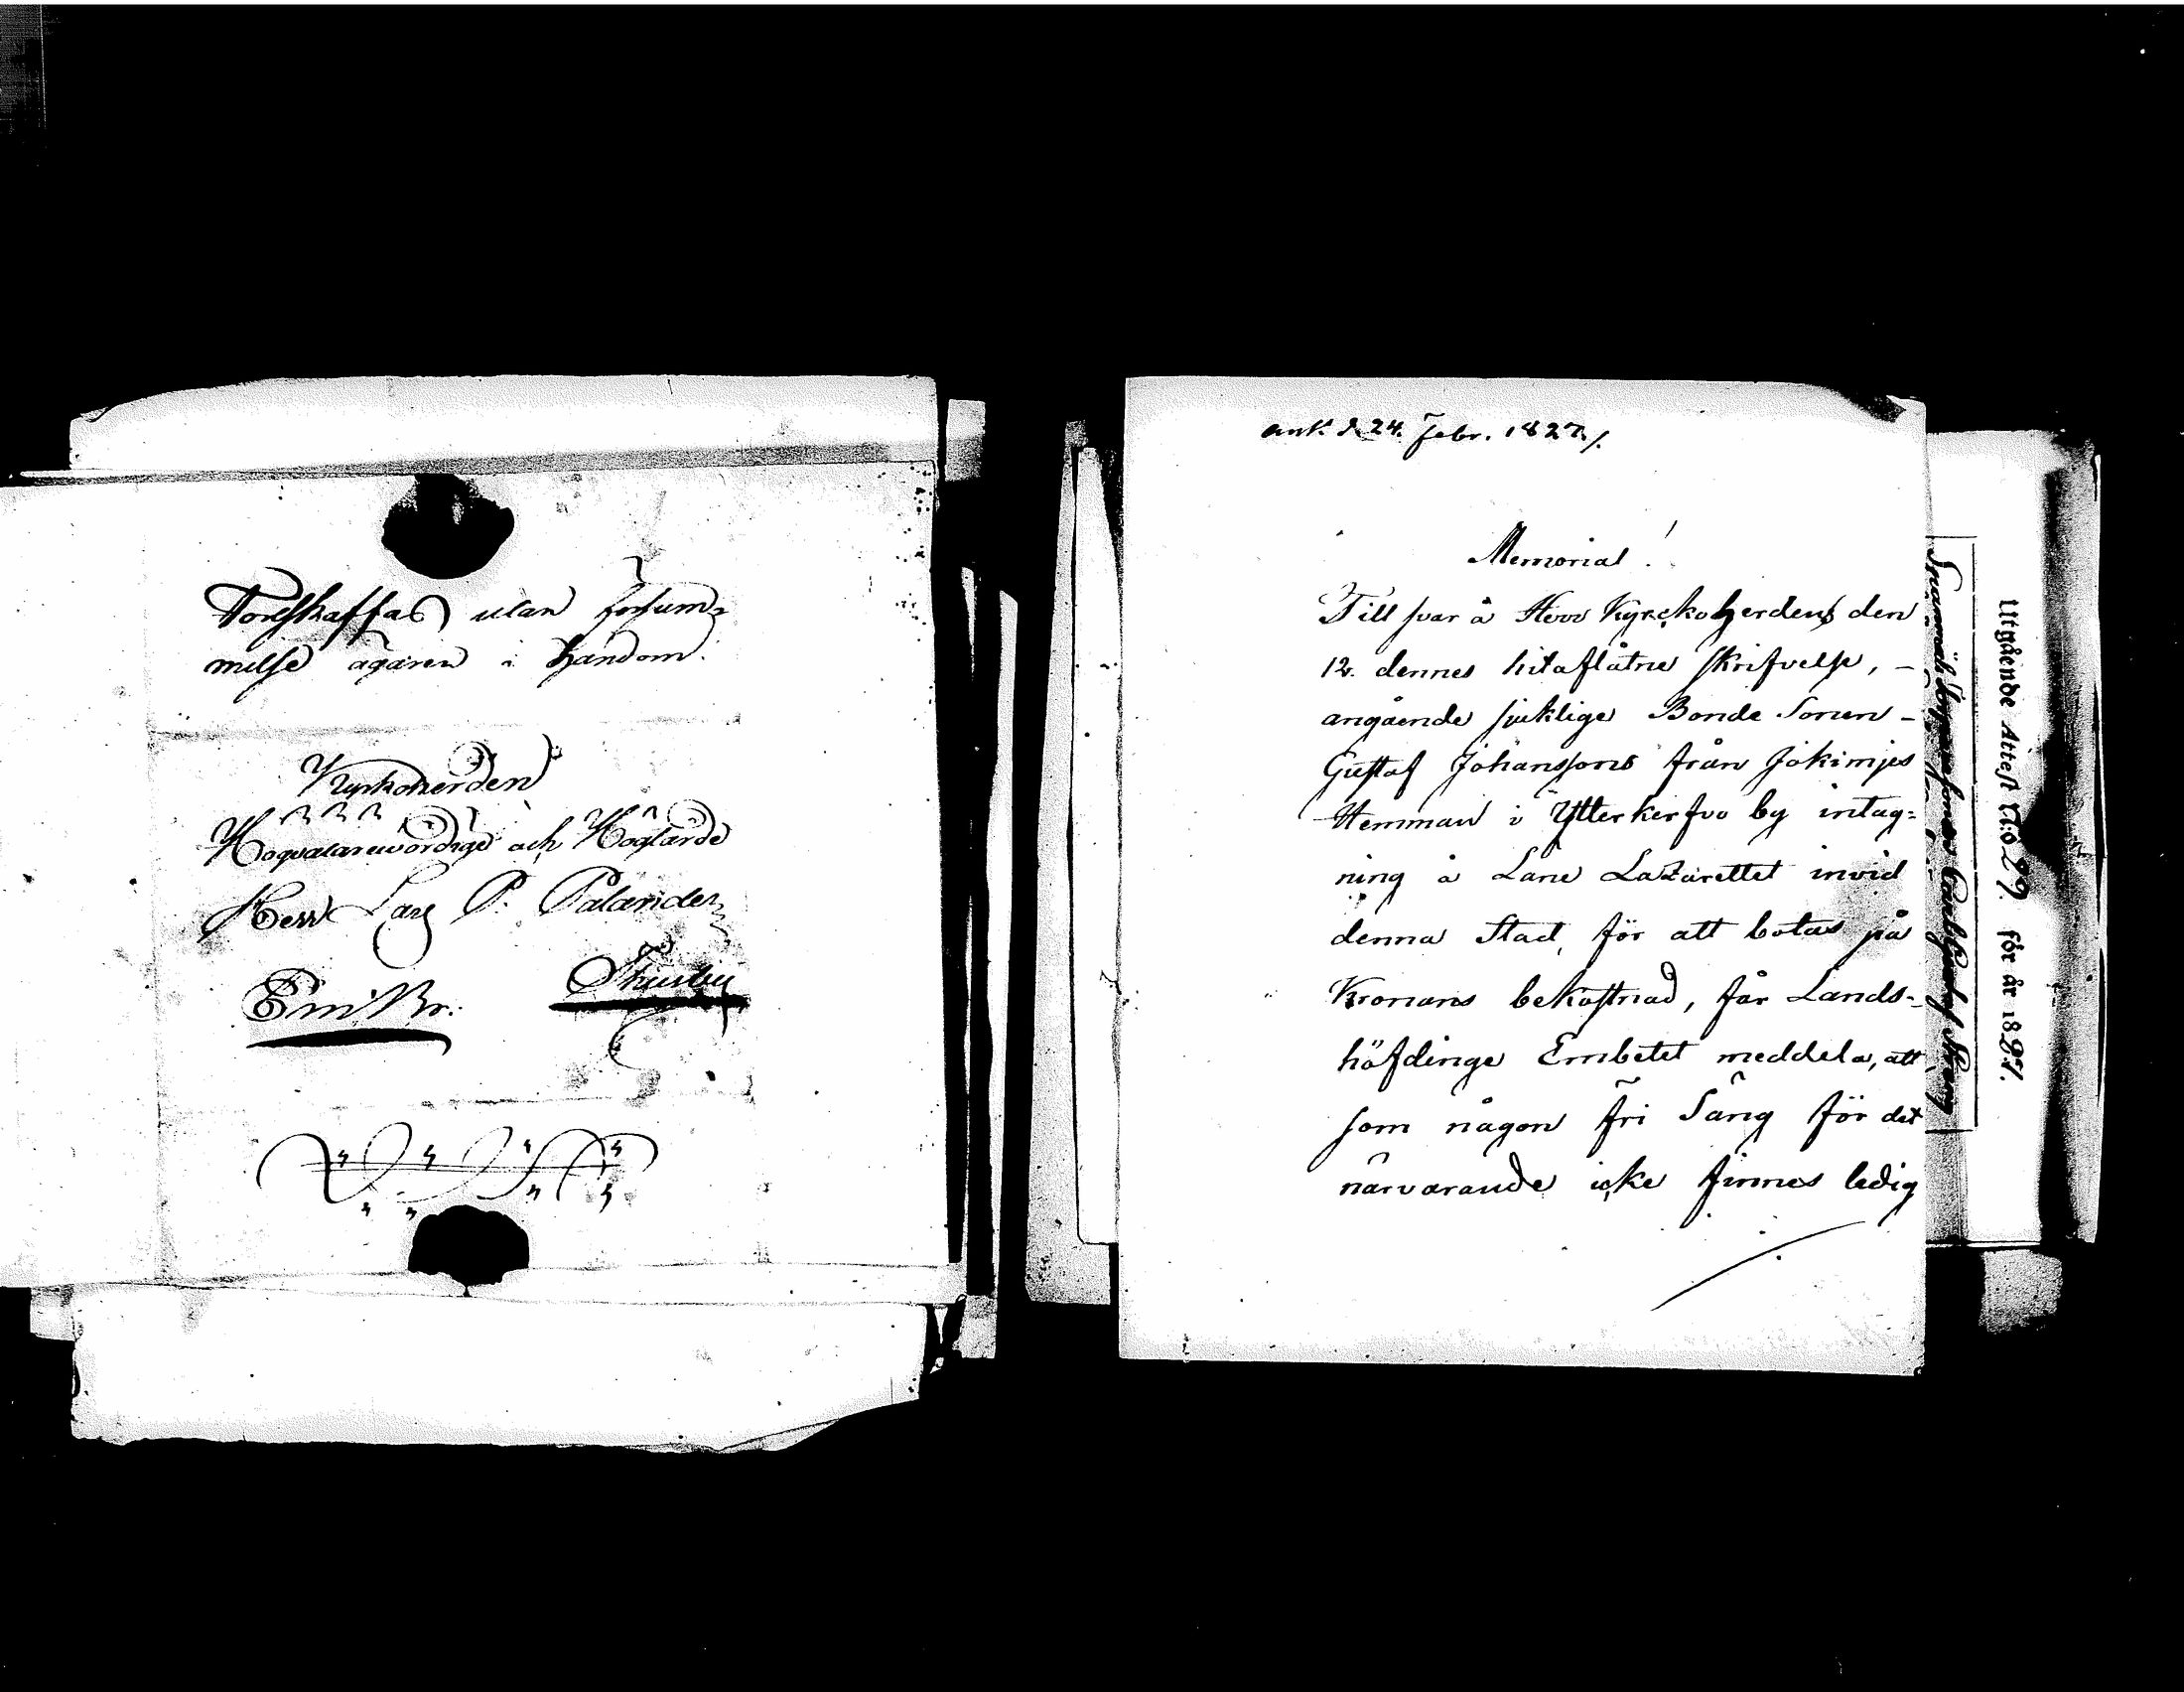 Fortskaffas utan försum-
melse ägaren i händom.
Kyrkoherden
Högvälärevördige och Höglärde
Herr Lars P. Palander
Thusby
ank. d. 24. Febr. 1827./.
Memorial!
Till svar å Herr Kyrckoherdens den
12. dennes hitaflåtne skrifvelse, –
angående sjuklige Bonde Sonen –
Gustaf Johanssons från Jokimjes
Hemman i Ytterkerfvo by intag=
ning å Läne Lazarettet invid
denna Stad, för att botas på
Kronans bekostnad, får Lands-
höfdinge Embetet meddela, att
som någon fri Säng för det
närvarande icke finnes ledig
Utgående Attest N:o 29. för år 18